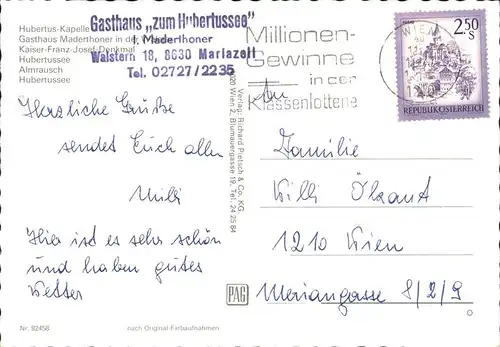 Hubertus-Kapelle
Gasthaus Maderthoner in der
Kaiser-Franz-Josef-Denkmal
Hubertussee
Almrausch
Hubertussee
Gasthaus „zum Hubertussee"
J. Maderthoner
Walstern 18, 8630 Mariazell
Tel. 02727/2235
Millionen-
Gewinne
in der
Klassenlotterie
WIEN
2.50
S
REPUBLIK ÖSTERREICH
Herzliche Grüße
sendet Euch allen
Milli
Hier ist es sehr schön
und haben gutes
Wetter
Verlag: Richard Pietsch & Co. KG.
1020 Wien 2, Blumauergasse 19, Tel. 24 25 84
Familie
Willi
1210 Wien
Meriangasse 8/2/9
PAG
Nr. 82458
nach Original-Farbaufnahmen